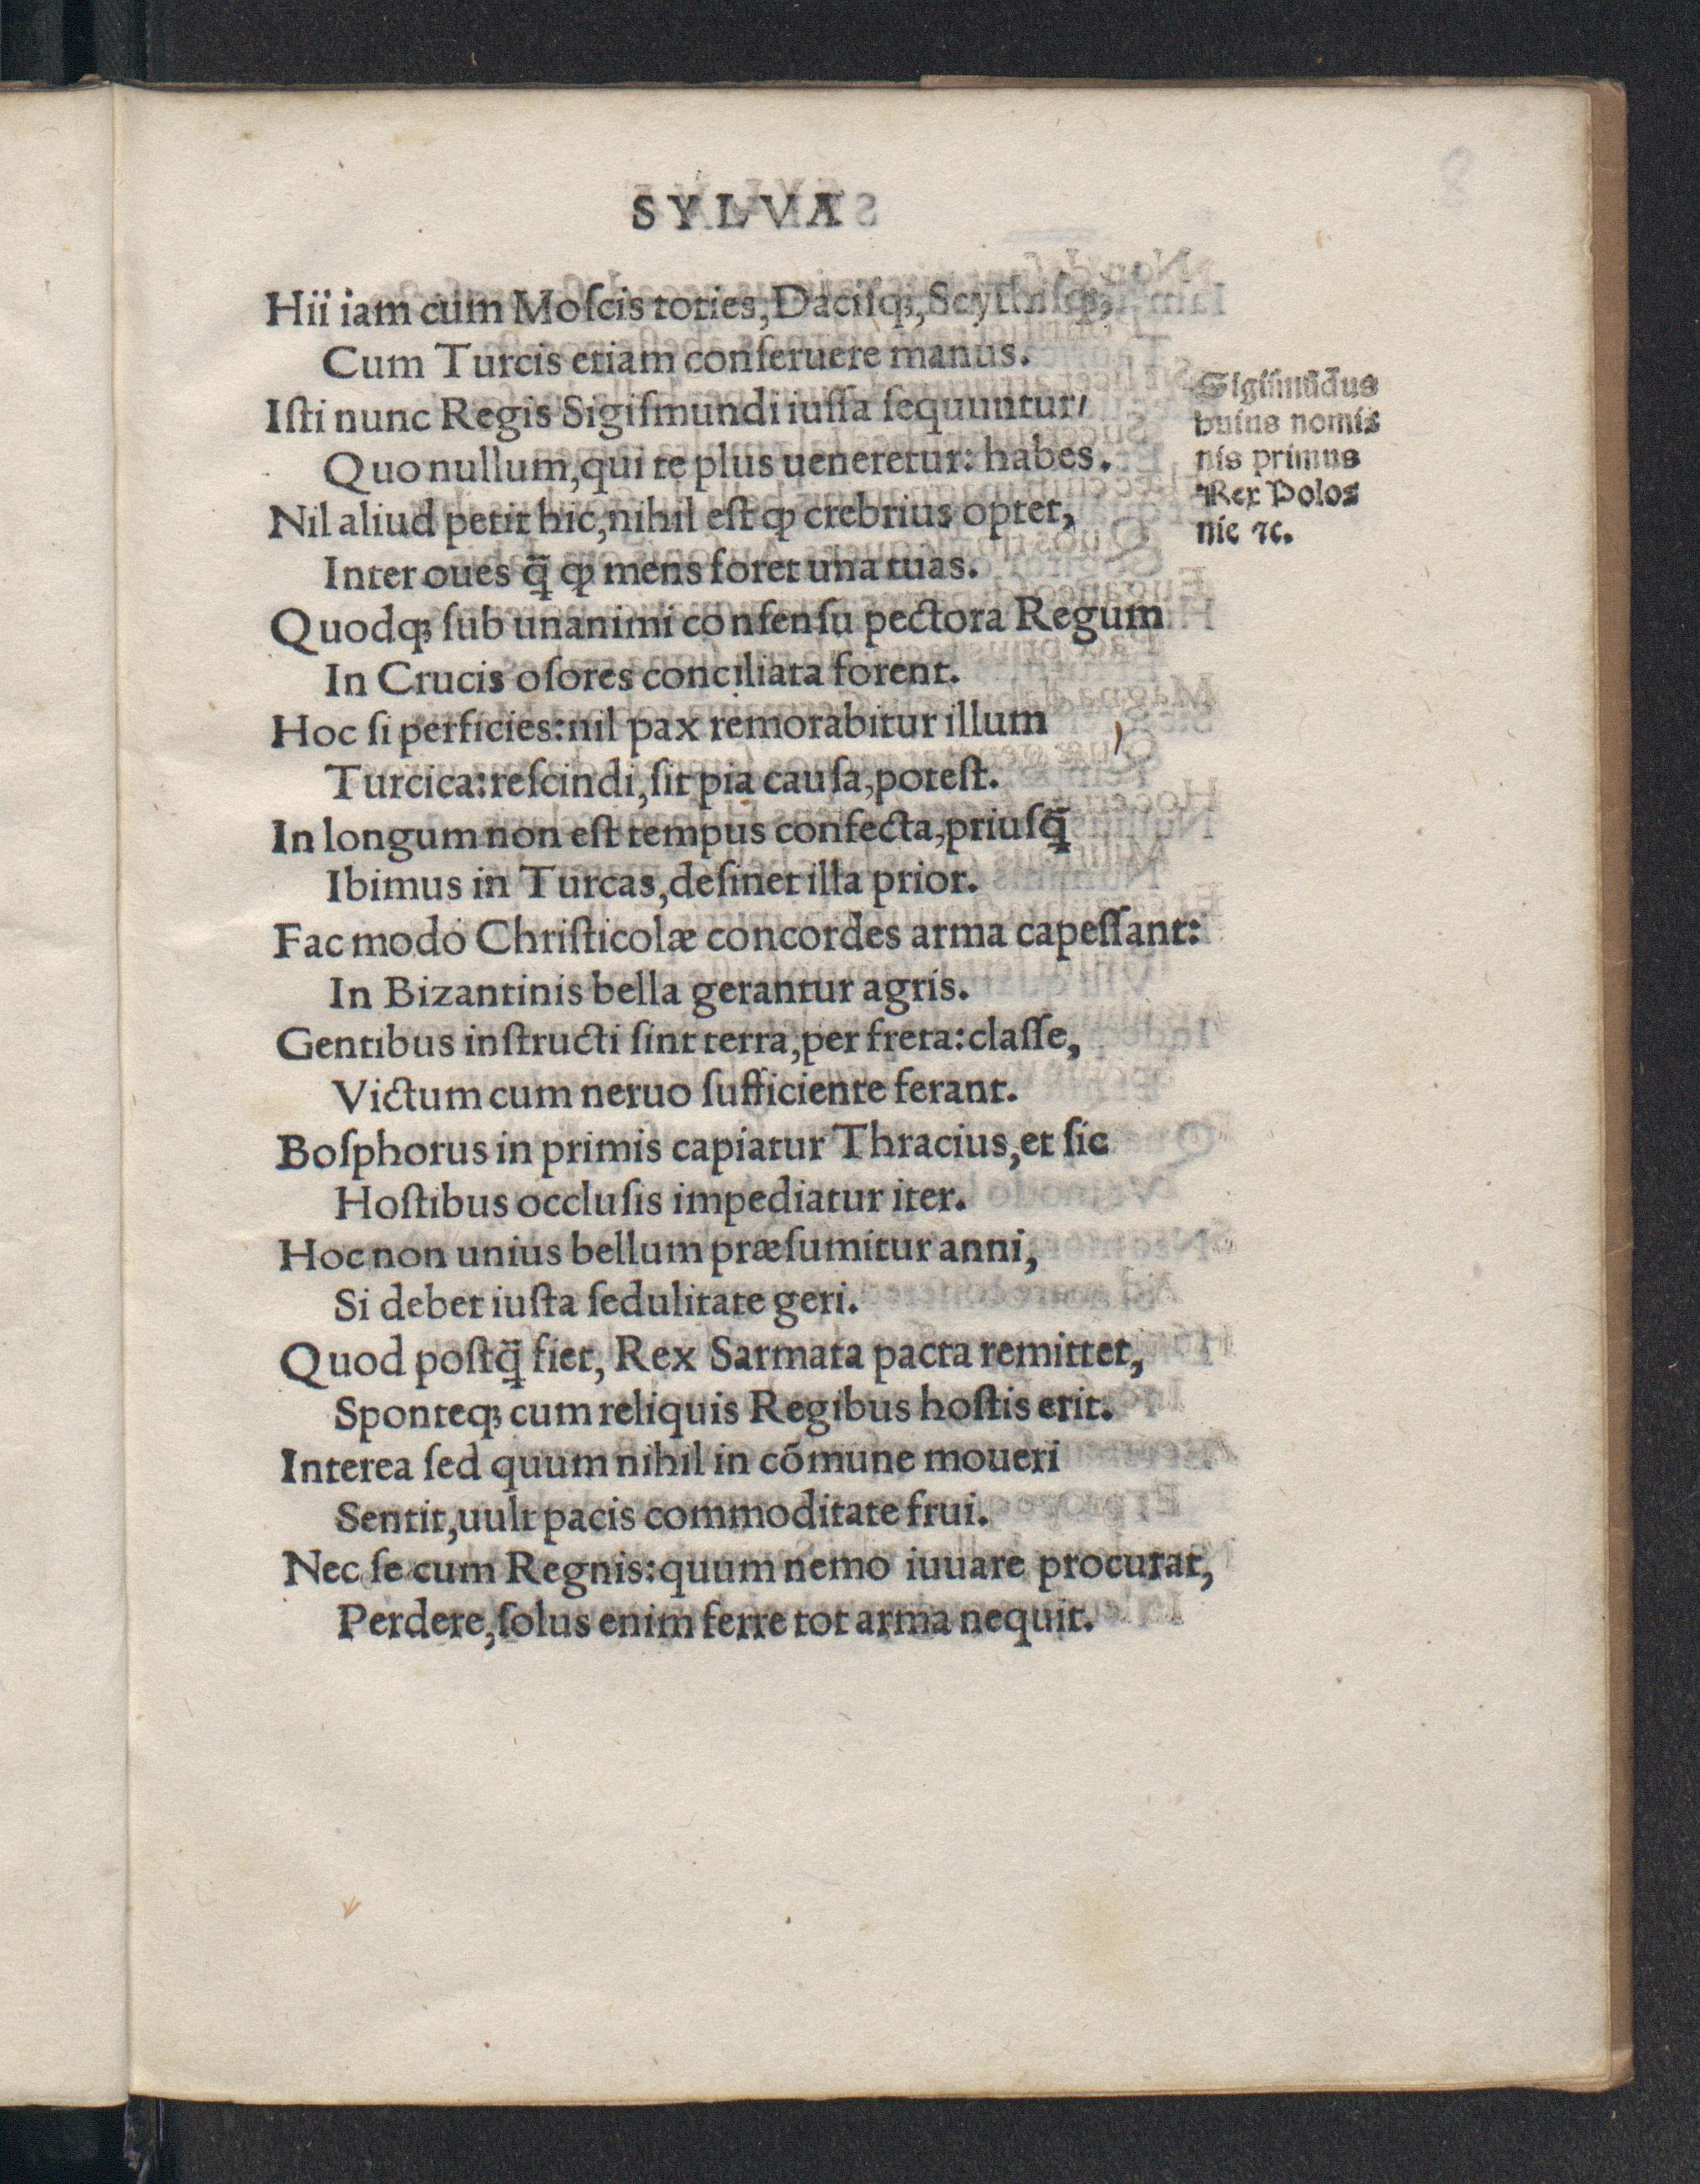 8
SYLVA
Hii iam cum Moſcis toties, Daciſqꝫ, Scythiſqꝫ,
Cum Turcis etiam conſeruere manus.
Iſti nunc Regis Sigiſmundi iuſſa ſequuntur/
Quo nullum, qui te plus ueneretur: habes.
Nil aliud petit hic, nihil eſt ꝙ crebrius optet,
Inter oues q̃ ꝙ mens foret una tuas.
Quodqꝫ ſub unanimi conſenſu pectora Regum
In Crucis oſores conciliata forent.
Hoc ſi perficies: nil pax remorabitur illum
Turcica: reſcindi, ſit pia cauſa, poteſt.
In longum non eſt tempus confecta, priuſq̃
Ibimus in Turcas, deſinet illa prior.
Fac modo Chriſticolæ concordes arma capeſſant:
In Bizantinis bella gerantur agris.
Gentibus inſtructi ſint terra, per freta: claſſe,
Victum cum neruo ſufficiente ferant.
Boſphorus in primis capiatur Thracius, et ſic
Hoſtibus occluſis impediatur iter.
Hoc non unius bellum præſumitur anni,
Si debet iuſta ſedulitate geri.
Quod poſtq̃ fiet, Rex Sarmata pacta remittet,
Sponteqꝫ cum reliquis Regibus hoſtis erit.
Interea ſed quum nihil in cōmune moueri
Sentit, uult pacis commoditate frui.
Nec ſe cum Regnis: quum nemo iuuare procurat,
Perdere, ſolus enim ferre tot arma nequit.
Sigiſmūdus
huius nomiꝫ
nis primus
Rex Poloꝫ
nie ⁊c.